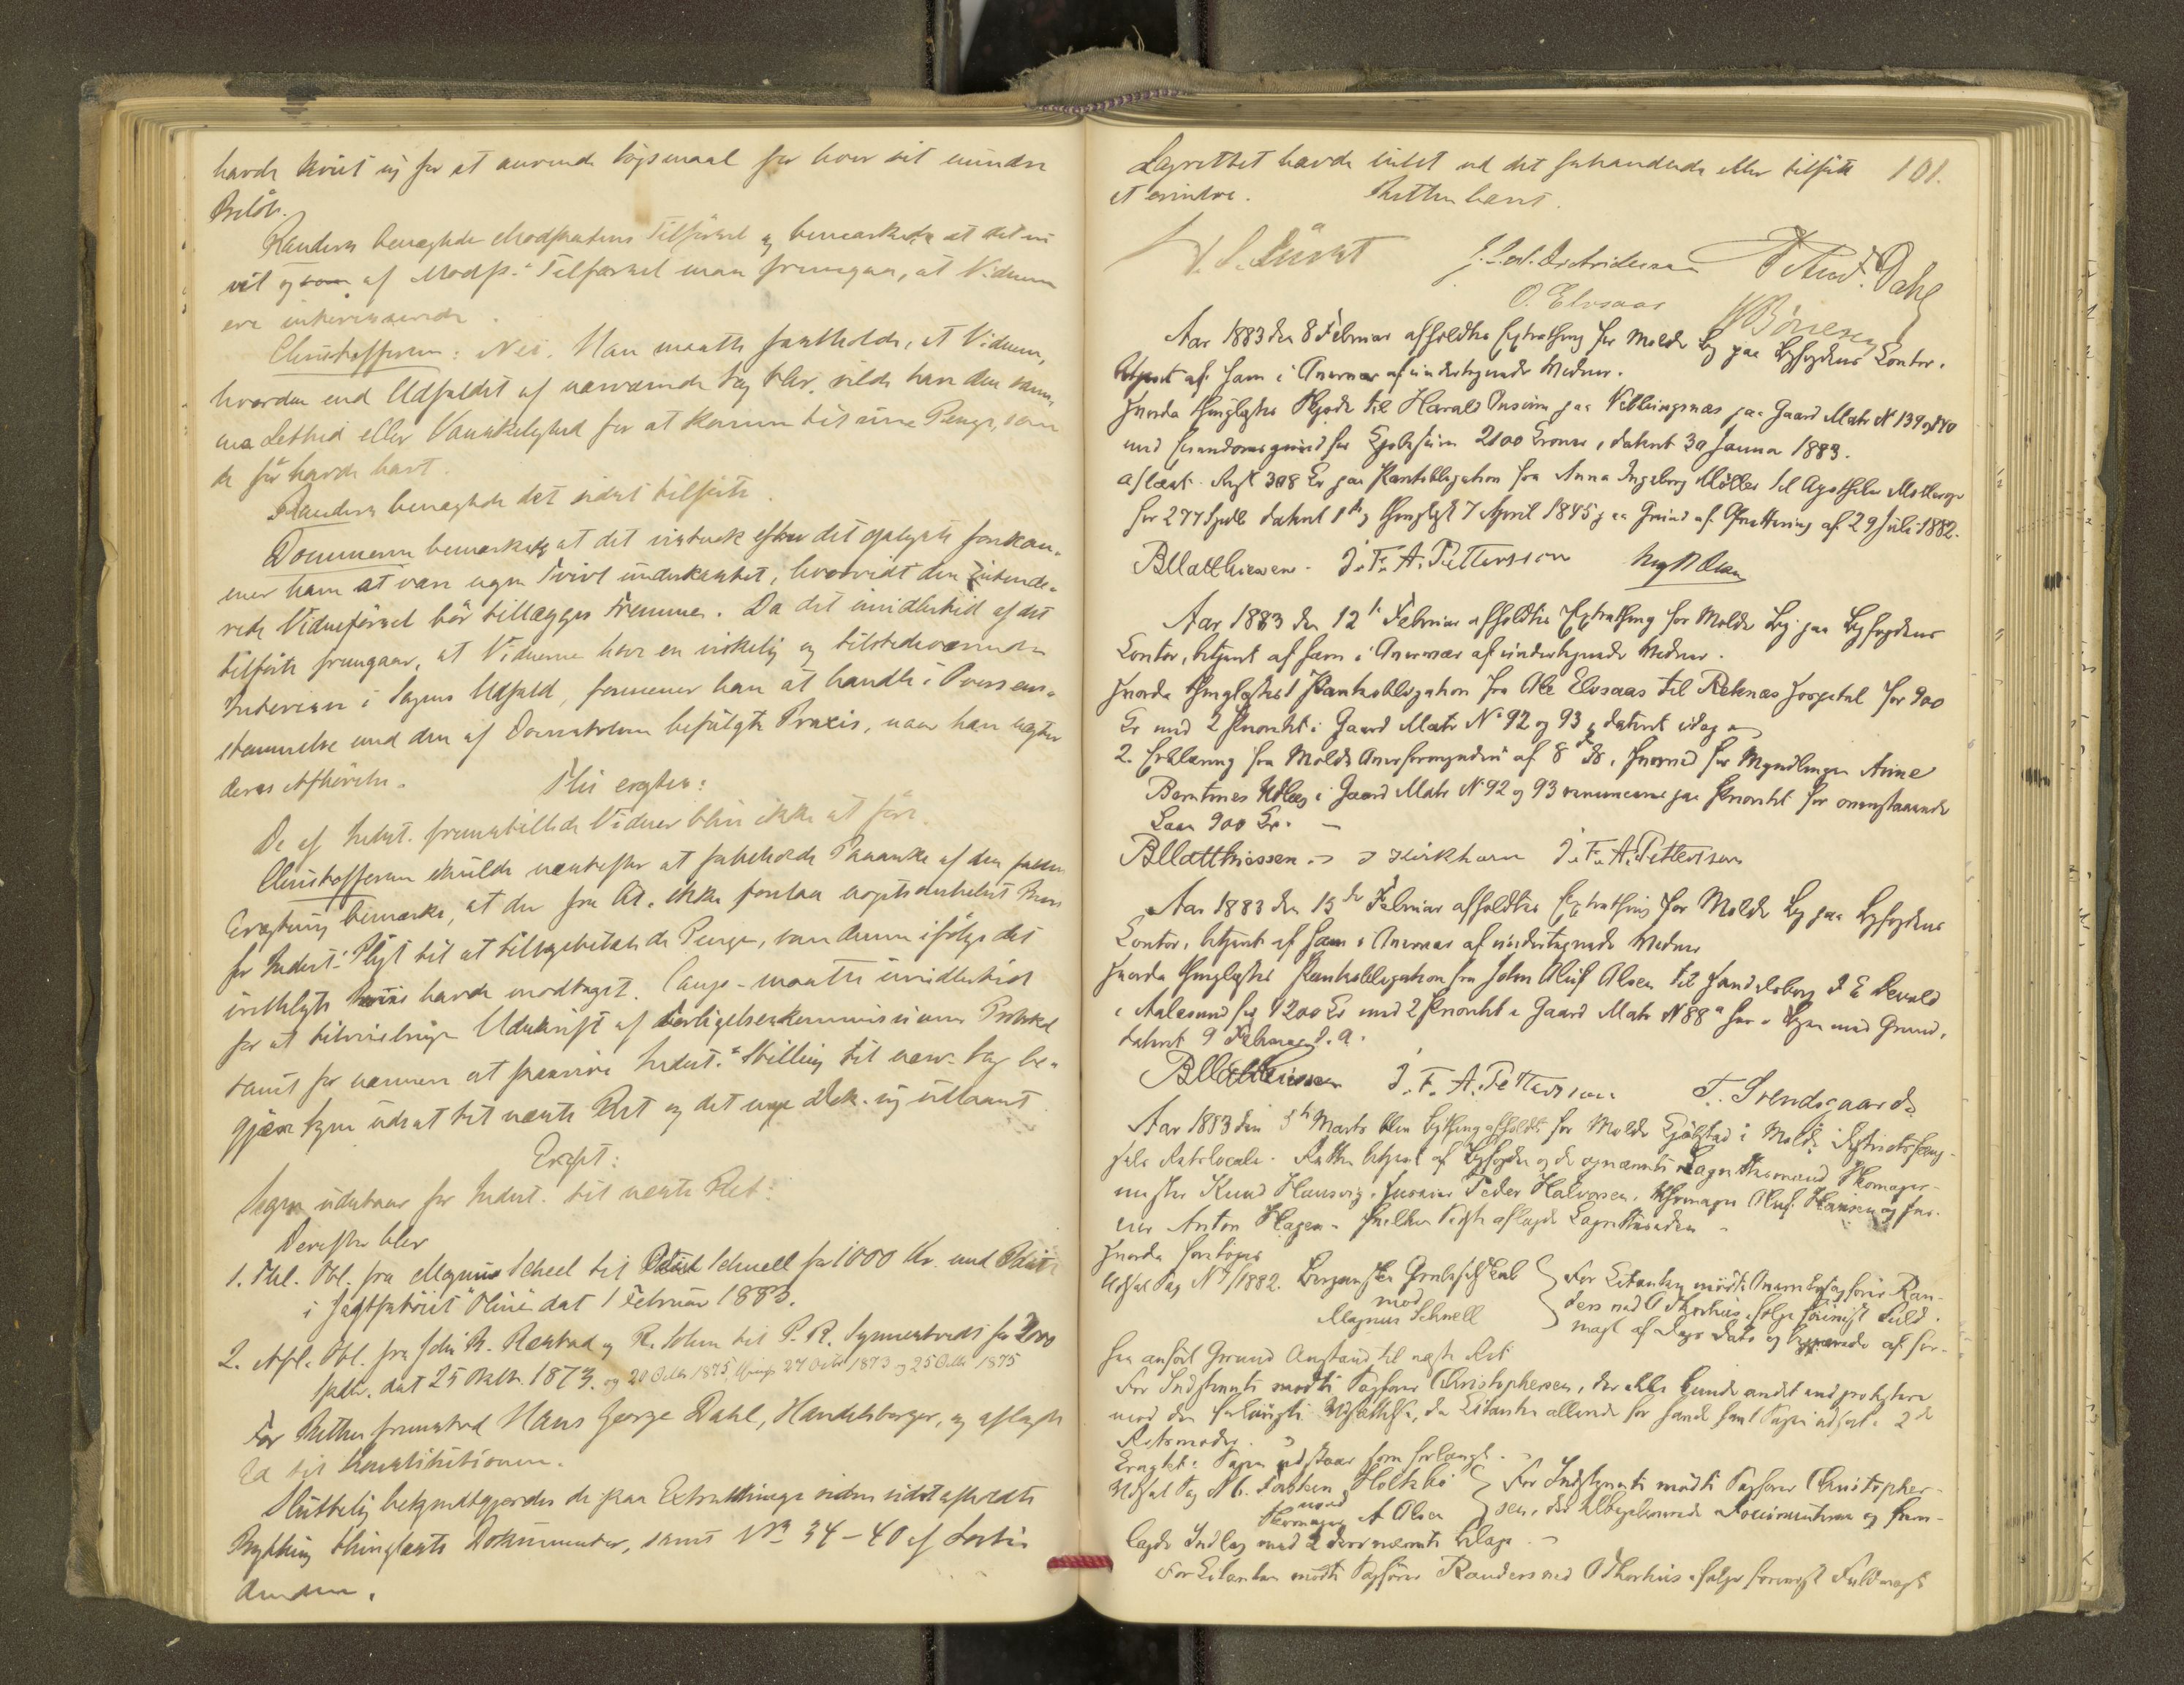 havde kviet sig for at anvende Søgsmaal for hver sit mindre
Beløb.
Randers benægtede Modpartens Tilførsel og bemærkede at det
vil og af Modp.s Tilførsel maa fremgaa, at Vidnerne
ere interesserede.
Christoffersen: Nei. Man maatte fastholde, at Vidnerne,
hvordan end Udfaldet af nærværende Sag blev, vilde have den sam-
ma Lethed eller Vanskelighed for at komme til sine Penge, som
de før havde havt.
Randers benægtede det sidst tilførte.
Dommeren bemærkede, at det vistnok efter det oplyste forekom-
mer ham at være ugen Tvivl underkastet, hvorvidt den intende-
rede Vidneførsel bør tillægges Fremme. Da det imidlertid af det
tilførte fremgaar, at Vidnerne have en virkelig og tilstedeværende
Interesse i Sagens Udfald, formener han at handle i Overens-
stemmelse med den af Domstolene befulgte Praxis, naar han nægter
deres Afhørelse.
Thi eragtes:
De af Indst. fremstillede Vidner blive ikke at føre.
Christoffersen skulde næstefter at forbeholde Paaanke af den faldne
Eragtning bemærke, at der fra Ct. ikke forelaa noget Bevis
for Indst.s Pligt til at tilbagebetale de Penge, som denne ifølge det
oplyste havde modtaget. Comp. maatte imidlertid
for at tilveiebringe Udskrift af Forligelseskommissionens Protokol
samt for nærmere at præcisere Indst.s Stilling til nærv. Sag be-
gjære Sagen udsat til næste Ret og det
Eragt:
Sagen udstaar for Indst. til næste Ret.
Derefter blev
1. Thl. Obl. fra Magnus Schnell til Schnell for 1000 Kr. med Pant
i Jagtfartøiet "Oline" dat 1 Februar 1883.
2. Afl. Obl. fra John R. Røstad og R. Sohn til P. R. Synnestvedt for 2000
Spdlr. dat 25 Oktbr. 1873. og 20 Octbr 1875, thingl 27 Octb 1873 og 25 Octbr 1875
For Retten fremstod Hans George Dahl, Handelsborger, og aflagde
Ed til Konstitutionen.
Sluttelig bekjendtgjordes de paa Extrathinge siden sidst afholdte
Bything thinglæste Dokumenter, samt No 34-40 af Lovti-
denden.
Lagrettet havde intet ved det forhandlede eller tilførte 101.
at erindre. Retten hævet.
O. Elvsaas
Aar 1883 den 8 Februar afholdtes Extrathing for Molde By paa Byfogdens Contor,
betjent af ham i Nærvær af undertegnede Vidner.
Hvorda thinglæstes Skjøde til Harald Onsum paa Veblungsnæs paa Gaard Matr No 139 og 140
med Eiendomsgrund for Kjøbesum 2100 Kroner, datert 30 Januar 1883.
Aflæst. Rest 308 Kr paa Pantobligation fra Anna Ingeborg Møller til Apotheker
for 277 Spdlr datert 1ste, thinglyst 7 April 1845 paa Grund af Qvittering af 29 Juli 1882.
BMatthiesen. J. F. A. Pettersson
Aar 1883 den 12te Februar afholdtes Extrathing for Molde By paa Byfogdens
Contor, betjent af ham i Nærvær af undertegnede Vidner.
Hvorda thinglæstes 1 Pantobligation fra Ole Elvsaas til Reknæs Hospital for 900
Kr med 2 Prioritet i Gaard Matr No 92 og 93, datert idag
2. Erklæring fra Molde Overformynderi af 8 ds, hvorved for Myndlingen Anne
Berntines Udlæg i Gaard Matr No 92 og 93 renunceres paa Prioritet for ovenstaaende
Laan 900 Kr.
BMatthiessen. J Kirkhorn J. F. A. Pettersson
Aar 1883 den 15de Februar afholdtes Extrathing for Molde By paa Byfogdens
Contor, betjent af ham i Nærvær af undertegnede Vidner
Hvorda thinglæstes Pantobligation fra John Oluf Olsen til Handelsborg I E Devold
i Aalesund for 1200 Kr med 2 Prioritet i Gaard Matr No 88a her i Byen med Grund,
datert 9 Februar d. A.
BMatthiessen J. F. A. Pettersson T. Svendsgaard
Aar 1883 den 5te Marts blev Bything afholdt for Molde Kjøbstad i Molde Distriktsfæng-
sels Retslocale. Retten betjent af Byfogden og de opnævnte Lagrettesmænd Skomager-
mester Knud Hansvig, Peder Halvorsen, Uhrmager Oluf Hansen og
Anton Hagen. Hvilken sidste aflagde Lagretteseden
Hvorda foretoges
Udsat Sag No 9/1882. Bergenske
mod
Magnus Schnell
For Citanten mødte Overretssagfører Ran-
ders ved O Thorhus, ifølge foreviist Fuld-
magt af Dags Dato og begjærede af for-
hen anført Grund Anstand til næste Ret
For Indstevnte mødte Sagfører Christophersen, der ikke kunde andet end protestere
mod den forlangte Udsættelse, da Citanten allerede for hans havt Sagen udsat i 2de
Retsmøder.
Eragtet: Sagen udstaar som forlangt.
Udsat Sag No 6. Torsten Holtsbø
mod
Skomager A Olsen
For Indstevnte mødte Sagfører Christopher-
sen, der tilbageleverede Documenterne og frem-
lagde Indlæg med 2 deri nævnte Bilage.
For Citanten mødte Sagfører Randers ved O Thorhus ifølge foreviist Fuldmagt